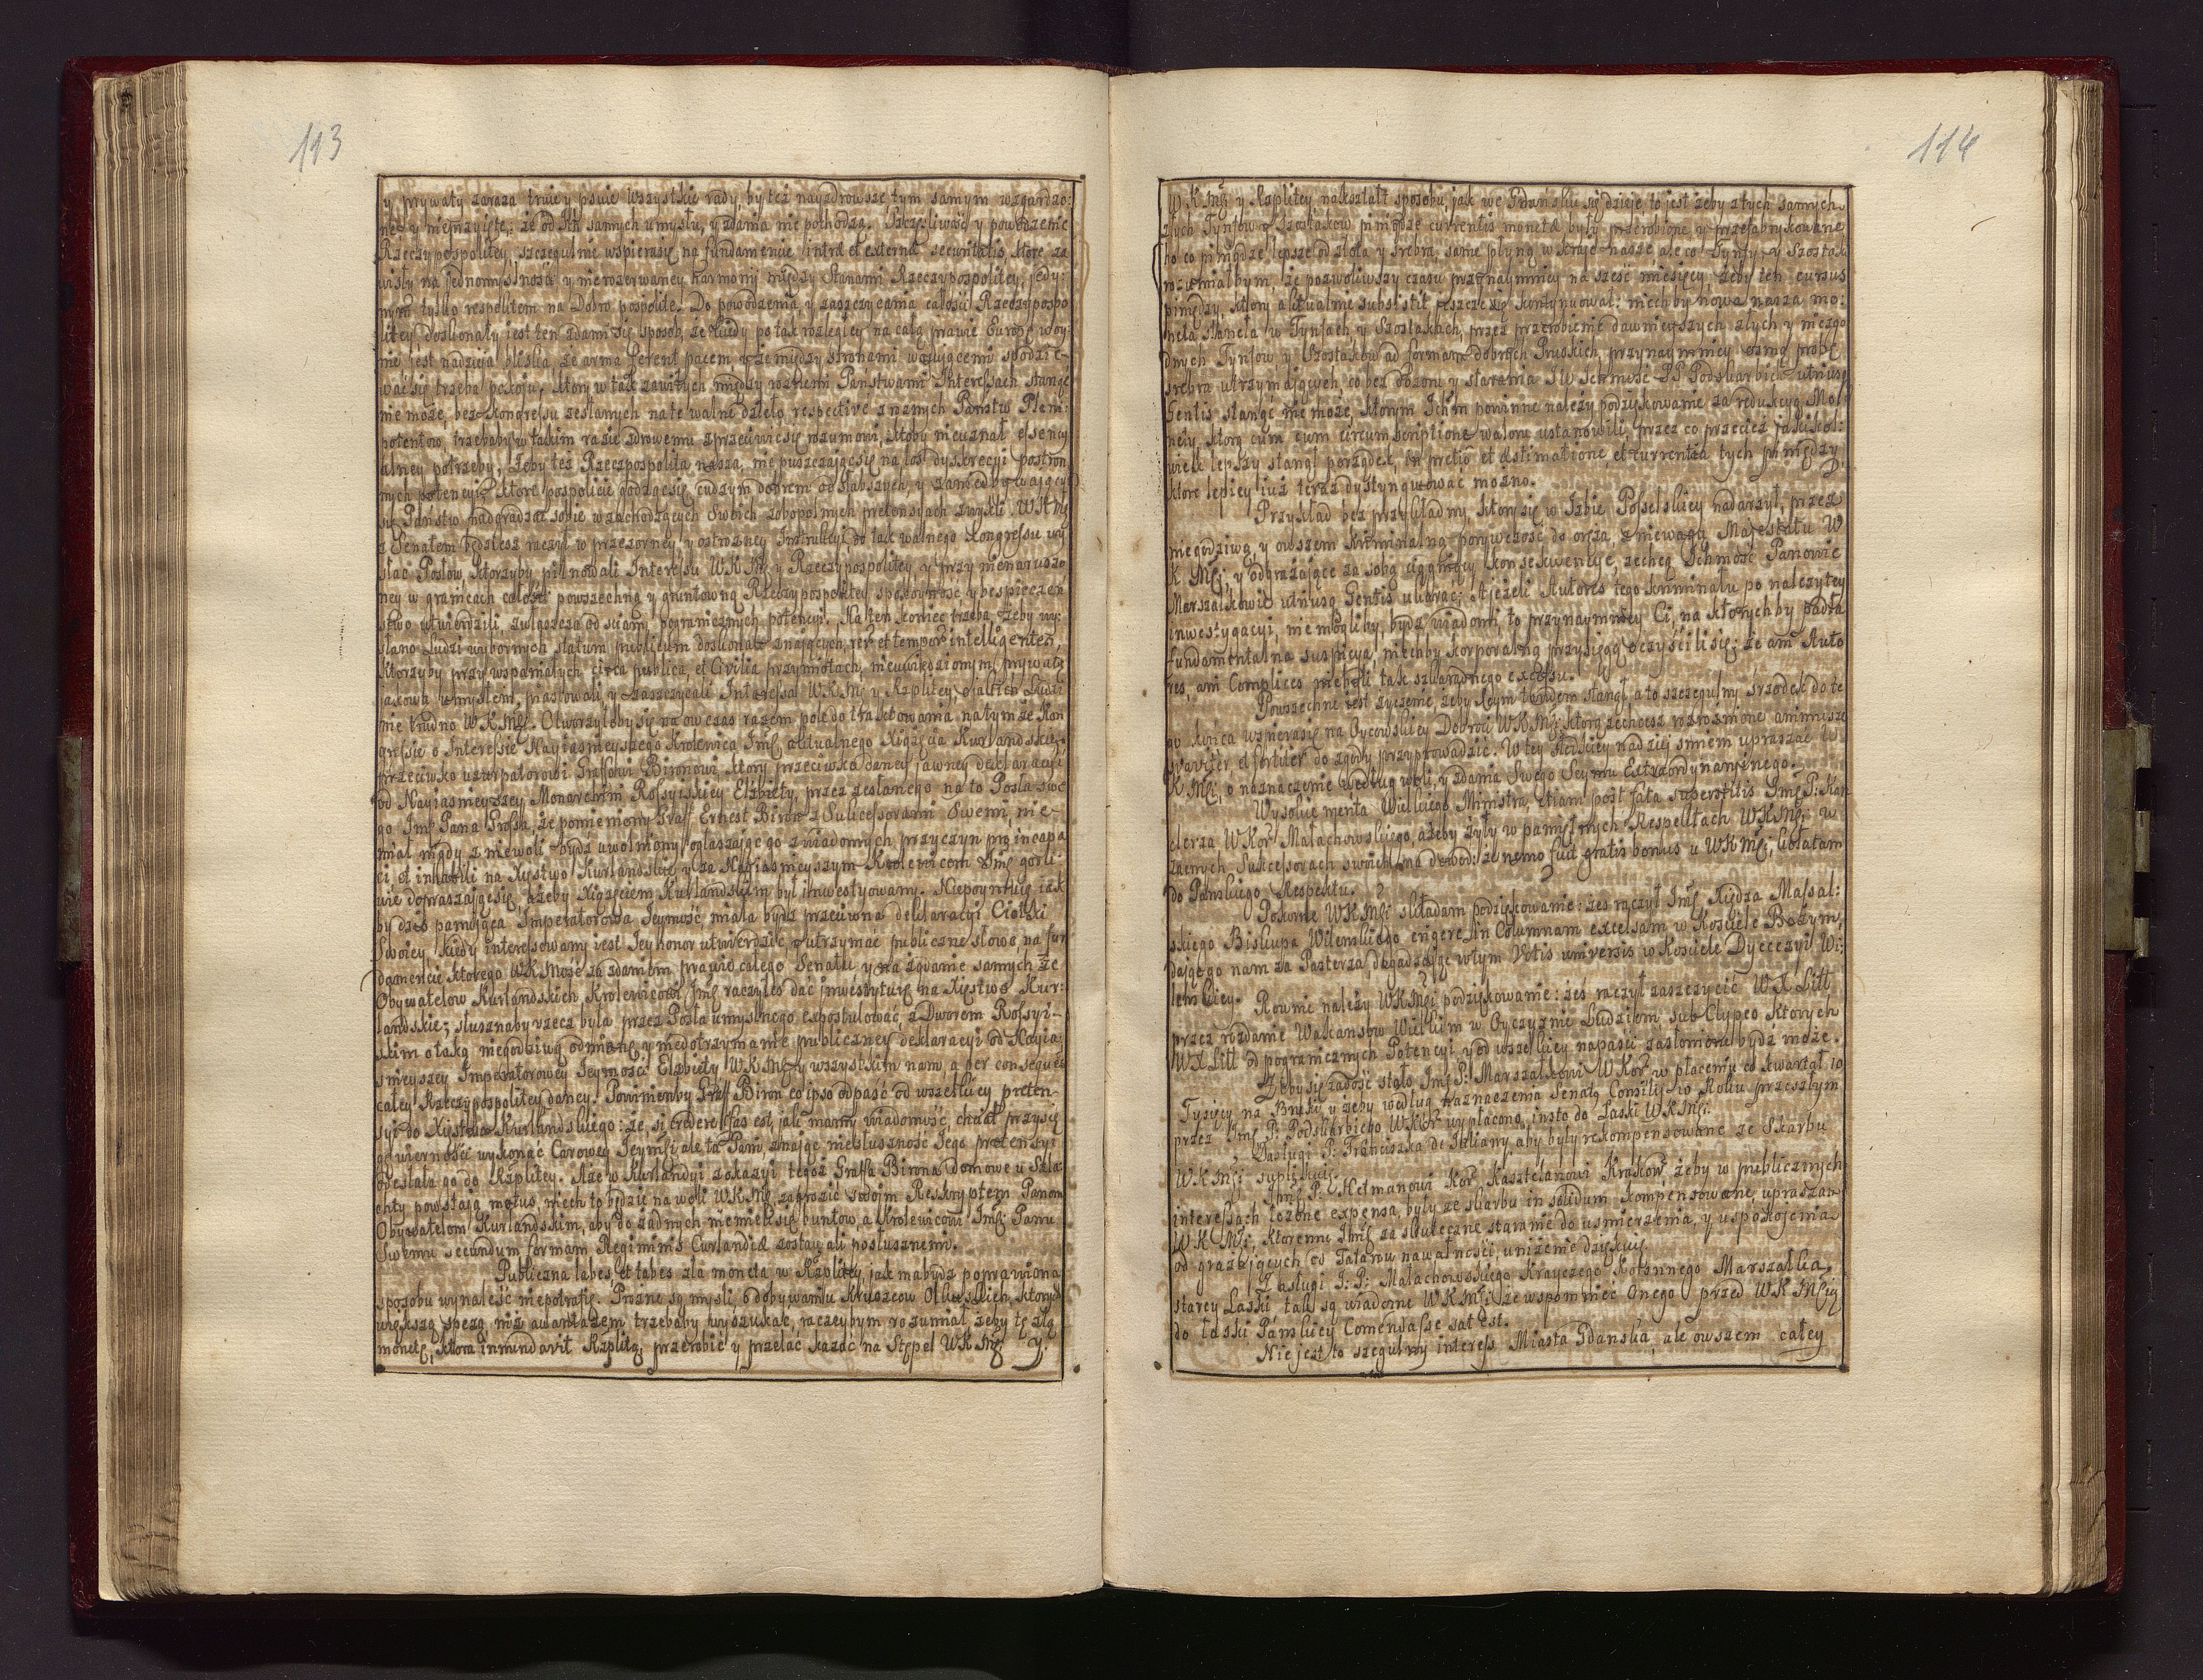 113
y prywaty zaraza truie y psuie wszystkie rady, by też nayzdrowsze tym samym wzgardzo:
ne y nieprzyięte: że od Ich samych umysłu, y zdania nie pochodzą. Szczęśliwość y powodzenie
Rzeczypospolitey szczegulnie wspiera się na fundamencie intra et externæ securitatis, ktore za
wisły na jednomyslności y nierozerwaney harmonij między Stanami Rzeczypospolitey, jedy:
nym tylko respektem na Dobro pospolite. Do powodzenia, y zaszczycania całości Rzeczypospo
litey doskonały jest ten zdami się sposob, że kiedy po tak rozległey na całą prawie Europę woy:
nie jest nadzieja bliska, że arma ferent pacem y że między stronami woiującemi spodzie-
wać się trzeba pokoju, ktory w tak zawiłych między rożnemi Państwami Interessach stanąć
nie może, bez Kongressu zesłanych na te walne dzieło, respectivé z rożnych Państw Pleni:
potentow, trzebaby w takim razie zdrowemu sprzeciwic się rozumowi, ktoby nieuznał essency
alney potrzeby, żeby też Rzeczpospolita nasza, nie puszczając się na los dyskrecyi postron
nych potencyi, ktore pospolicie godzą się cudzym dobrem od słabszych, y zaniedbywający
się Państw nadgradzać sobie w zachodzących Swoich zobopolnych pretensyach zwykli. WKMć
z Senatem będziesz raczył w przezorney y ostrożney Instrukcyi, do tak walnego Kongressu wy
słać Posłow, ktorzyby pilnowali Interesu WKMci y Rzeczypospolitey, y przy nienaruszo
ney w granicach całości powszechną y gruntowną Rzeczypospolitey spokoyność y bespieczeń
stwo utwierdzili, zwłaszcza od sciany pogranicznych potencyi. Na ten koniec trzeba, żeby wy:
słano ludzi wybornych, statum publicum doskonale znających, rer: et tempor: intelligentes,
ktorzyby przy wspaniałych circa publica, et Civilia przymiotach, nieuwiedzionym prywatą
jakową umysłem, piastowali y zaszczycali Interessa WKMci y Rzplitey, o jakich Ludzi
nie trudno WKMci. Otworzyłoby się na ow czas razem pole do traktowania, na tymże Kon
gressie o Interessie Nayiasnieyszego Krolewica Imći aktualnego Xiążęcia Kurlandskiego,
przeciwko uzurpatorowi Graffowi Bironowi, ktory przeciwko daney jawney deklaracyi
od Nayiasnieyszey Monarchini Rossyiskiey Elżbiety, przez zesłanego na to Posła swe
go Imći Pana Grossa, że pomieniony Graff Ernest Biron z Sukcessorami Swemi, nie-
miał nigdy z niewoli bydź uwolniony, ogłaszając go z wiadomych przyczyn pro incapa
ci et inhabili na Xięstwo Kurlandskie, y za Nayiasnieyszym Krolewicem Imći gorli
wie dopraszając się, ażeby Xiążęciem Kurlandskim był inwestyowany. Niepoymuię jak
by dziś panująca Imperatorowa Jeymość, miała bydź przeciwna deklaracyi Ciotki
Swoiey, kiedy interesowany iest Jey honor utwierdzić, y utrzymać publiczne słowo, na fun
damencie ktorego WKMość za zdaniem prawie całego Senatu y na żądanie samych że
Obywatelow Kurlandskich, Krolewicowi Imći raczyłeś dać inwestyturę na Xięstwo Kur:
landskie; słusznaby rzecz była przez Posła umyslnego expostulować z Dworem Rossyi-
skim o taką niegodziwą odmianę, y niedotrzymanie publiczney deklaracyi od Nayia:
snieyszey Imperatorowey Jeymości Elżbiety WKMci y wszystkim nam, a per consequens
całey Rzeczypospolitey daney. Powinienby Graff Biron eo ipso odpaść od wszelkiey preten-
syi do Xięstwa Kurlandskiego: że, si credere fas est, jak mamy wiadomość, chciał przysię
gę wierności wykonać Carowey Jeymści, ale ta Pani, znając niesłuszność Jego pretensyi
odesłała go do Rzplitey. A że w Kurlandyi z okazyi tegoż Graffa Birona domowe u Szla:
chty powstają motus, niech to będzie na woli WKMci, zagrozić Swoim Reskryptem Panom
Obywatelom Kurlandskim, aby do żadnych niemieli się buntow, a Krolewicowi Imći Panu
Swemu secundum formam Regiminis Curlandiæ zostawali posłusznemi.
Publiczna labes, et tabes zła moneta w Rzplitey, jak ma bydź poprawiona
sposobu wynaleść niepotrafię. Prozne są mysli, o dobywaniu Kruszcow Olkuskich, ktorych
większą spezą, niż awantażem trzebaby wyszukać, raczeybym rozumiał, żeby tę złą
monetę, ktora inundavit Rzplitę, przerobić y przelać kazać na Stępel WKMci y.
114
WKMći y Rzplitey na kształt sposobu, jak we Gdansku się dzieje, to jest żeby z tych samych
złych Tynfow y Szostakow pieniądze currentis monetæ były przerobione y przefabrykowane
bo co pieniądze lepsze od złota y srebra, same płyną w kraje nasze, ale co Tynfy y Szostaki
rozumiałbym, że pozwoliwszy czasu przynaymniey na sześć miesięcy, żeby ten cursus
pieniędzy, ktory aktualnie subsistit jeszcze się kontynuował: niechby nowa nasza mo:
neta stanęła w Tynfach y Szostakach, przez przerobienie dawnieyszych złych y niezgo
dnych Tynfow y Szostakow ad formam dobrych Pruskich, przynaymniey osmą probę
srebra utrzymających, co bez dozoru y starania JW Ichmość PP Podskarbich utriusq
Gentis stanąć nie może, ktorym Ichm powinne należy podziękowanie za redukcyą Mo:
nety, ktorą cum eum circumscriptione waloru ustanowili, przez co przecież jakiżkol:
wiek lepszy stanął porządek, in pretio et æstimatione, et currentia tych pieniędzy,
ktore lepiey iuż teraz dystyngwować można.
Przykład bez przykładny, ktory się w Izbie Posselskiey nadarzył, przez
niegodziwą, y owszem kryminalną porywczość do oręża, zniewagą Majestatu W
K Mći y odgrażające za sobą ciągnący konsekwencye, zechcą Ichmość Panowie
Marszałkowie utriusq Gentis ukarać; A jeżeli Autores tego kryminału po należytey
inwestygacyi, nie mogliby bydź wiadomi, to przynaymniey Ci, na ktorychby padła
fundamentalna suspicya, niechby korporalną przysięgą oczyścili się: że ani Auto
res, ani Complices niebyli tak szkaradnego excessu.
Powszechne iest życzenie, żeby Seym tandem stanął, a to szczegulny śrzodek do te
go końca wspiera się na Oycowskiey Dobroci WKMći ktorą zechcesz rozrożnione animusze
svaviter et fortiter do zgody przyprowadzić. W tey słodkiey nadziei smiem upraszać W
K Mći, o naznaczenie według woli, y zdania Swego Seymu Extraordynaryinego.
Wysokie menta Wielkiego Ministra, etiam post fata superstitis Imći P: Kan
clerza WKor Małachowskiego, ażeby żyły w pamiętnych Respektach WKMći w
zacnych Sukcesorach swoich, na dowod: że nemo fuit gratis bonus u WKMći, libratam
do Pańskiego Respektu.
Pokorne WKMći składam podziękowanie: żeś raczył Imći Xiędza Massal:
skiego Biskupa Wilenskiego erigere in Columnam excelsam w Kościele Bożym,
dając go nam za Pasterza dogadzając w tym Votis universis w Kościele Dyecezyi Wi:
leńskiey.
Rownie należy WKMći podziękowanie: żeś raczył zaszczycić WX Litt
przez rozdanie Wakansow Wielkim w Oyczyznie Ludziom sub Clypeo ktorych
WX Litt od pogranicznych Potencyi, y od wszelkiey napaści zasłonione bydź może.
Żeby się zadość stało Imći P: Marszałkowi WKor w płaceniu co kwartał 10
Tysięcy na Bruki y żeby według naznaczenia Senatus Consilij w Roku przeszłym
przez Imć P: Podskarbiego WKor wypłacono, insto do Łaski WKMći.
Zasługi P: Franciszka de Juliany, aby były rekompensowane ze Skarbu
WKMći suplikuię.
Imći P: Hetmanowi Kor Kasztelanowi Krakow: żeby w publicznych
interessach łożone expensa, były ze skarbu in solidum kompensowane, upraszam
WK Mći, ktoremu Imći za skuteczne staranie do usmierzenia, y uspokojenia
od grażających co Tatarow nawałności, uniżenie dziękuię.
Zasługi J: P: Małachowskiego Krayczego Koronnego Marszałka,
starey Laski tak są wiadome WKMći, że wspomnieć Onego przed WKMścią
do Łaski Pańskiey Comendasse sat est.
Nie jest to szegulny interess Miasta Gdanska, ale owszem całey